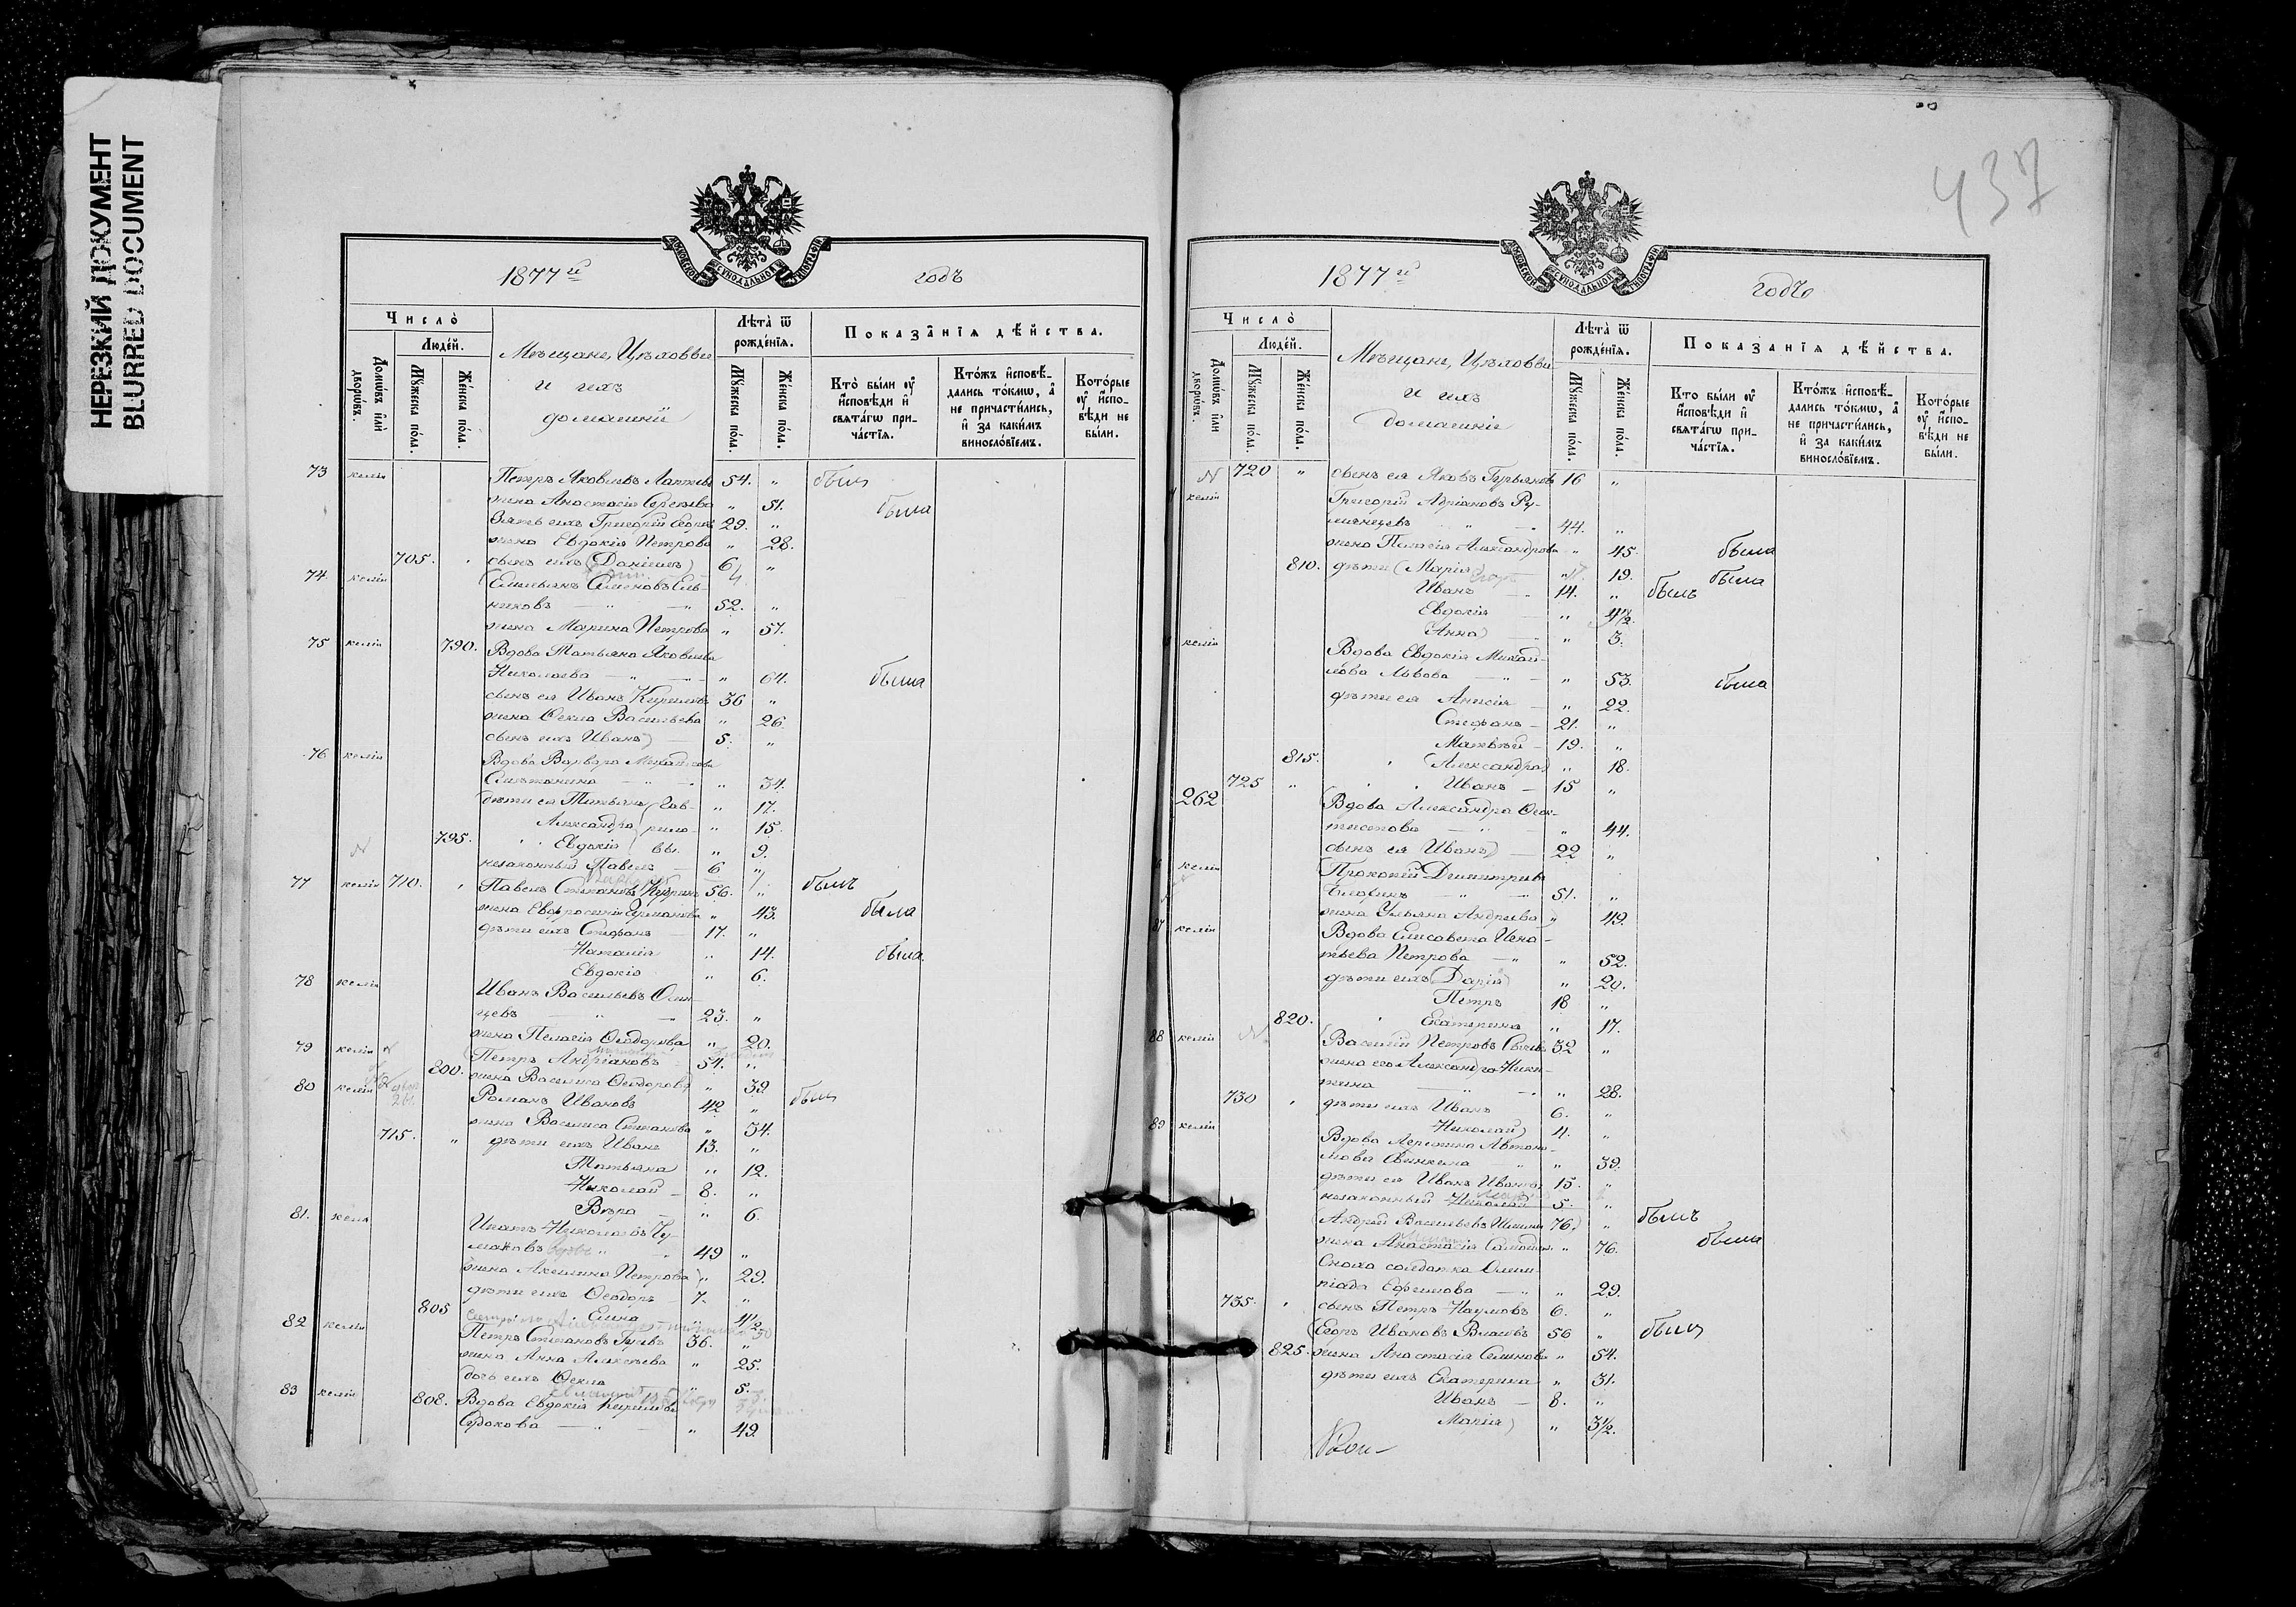 НЕРЕЗКИЙ ДОКУМЕНТ
BLURRED DOCUMENT
МОСКОВСКОЙ СѴНОДАЛЬНОЙ ТИПОГРАФІИ
1877й годъ
Число̀
Людéй.
Домѡ́въ и҆лѝ дворѡ́въ.
Мꙋ́жеска по́ла.
Же́нска по́ла.
Мѣщане, Цѣховые
и ихъ
домашніи
Лѣта̀ ѿ рождéнїѧ.
Мꙋ́жеска по́ла.
Же́нска по́ла.
Показа̑нїѧ дѣ́йства.
Кто̀ бы́ли ᲂу҆ и҆сповѣ́ди и҆ свѧта́гѡ прича́стїѧ.
Кто́жъ и҆сповѣ́дались то́кмѡ, а҆ не причасти́лись, и҆ за каки́мъ винослóвїемъ.
Кото́рые ᲂу҆ и҆сповѣ́ди не бы́ли.
73 келія Петръ Яковлевъ 54. " былъ
жена Анастасія Сергѣева " 51. была
Зять ихъ Григорій 29. "
жена Евдокія Петрова " 28.
705. " сынъ ихъ (Даніилъ) 6 "
74 келія Емельянъ Семеновъ
никовъ 52. "
жена Марина Петрова " 51.
75 келія 790. Вдова Татьяна Яковлева
Николаева " 64. была
сынъ ея Иванъ Кириловъ 36 "
жена Ѳекла Васильева " 26
сынъ ихъ Иванъ 5. "
76 келія Вдова Варвара Михайлова
Сметанина " 34.
дѣти ея Татьяна Гав- " 17.
Александра рило- " 15.
795. Евдокія вы. " 9.
незаконный Павелъ 6 "
77 келія 710. " Павелъ Степановъ 56. " былъ
жена Евфросинія Германова " 43. была
дѣти ихъ Стефанъ 17. "
Наталія " 14. была
Евдокія " 6.
78 келія Иванъ Васильевъ
цевъ 23. "
жена Пелагія Ѳеодорова " 20.
79 келія Петръ Андріановъ 54. "
800. жена Василиса Ѳеодорова " 39.
80 келія Романъ Ивановъ 42 " былъ
жена Василиса Степанова " 34.
715. " дѣти ихъ Иванъ 13. "
Татьяна " 12.
Николай 8. "
Вѣра " 6.
81. келія Игнатъ Николаевъ Чу-
маковъ 49 "
жена Акилина Петрова " 29.
дѣти ихъ Ѳеодоръ 7. "
805 Елена " 4½
82 келія Петръ Степановъ 36. "
жена Анна Алексѣева " 25.
дочь ихъ Ѳекла " 5.
83 келія 808. Вдова Евдокія Кирилова
" 49.
437
МОСКОВСКОЙ СѴНОДАЛЬНОЙ ТИПОГРАФІИ
1877й годъ
Число̀
Людéй.
Домѡ́въ и҆лѝ дворѡ́въ.
Мꙋ́жеска по́ла.
Же́нска по́ла.
Мѣщане, Цѣховые
и ихъ
домашніе
Лѣта̀ ѿ рождéнїѧ.
Мꙋ́жеска по́ла.
Же́нска по́ла.
Показа̑нїѧ дѣ́йства.
Кто̀ бы́ли ᲂу҆ и҆сповѣ́ди и҆ свѧта́гѡ прича́стїѧ.
Кто́жъ и҆сповѣ́дались то́кмѡ, а҆ не причасти́лись, и҆ за каки́мъ винослóвїемъ.
Кото́рые ᲂу҆ и҆сповѣ́ди не бы́ли.
N 720 " сынъ ея Яковъ Гурьяновъ 16 "
келія Григорій Адріановъ Ру-
мянцевъ 44. "
жена Пелагія Александрова " 45. была
810. дѣти (Марія " 19. была
Иванъ 14. " былъ
Евдокія " 4½.
Анна) " 3.
келія Вдова Евдокія Михай-
лова Львова " 53. была
дѣти ея Анисія " 22.
Стефанъ 21. "
Матвѣй 19. "
815. (Александра) " 18.
725 " Иванъ 15 "
262 Вдова Александра Ѳеок-
тистова " 44.
сынъ ея Иванъ 22 "
келія Прокопій Димитріевъ
51. "
жена Ульяна Андреева " 49.
87 келія Вдова Елисавета Игна-
тьева Петрова " 52.
дѣти ихъ (Дарія) " 20.
Петръ 18 "
820. Екатерина " 17.
88 келія N Василій Петровъ 32 "
жена его Александра Ники-
тина " 28.
730 " дѣти ихъ Иванъ 6. "
Николай 4. "
89 келія Вдова Автоно-
мова " 39.
дѣти ея Иванъ Ивановъ 15. "
незаконный Николай 5. "
Андрей Васильевъ Шишкинъ 76. " былъ
жена Анастасія " 76. была
Сноха солдатка Олим-
піада Ефимова " 29.
735. " сынъ Петръ Наумовъ 6. "
Егоръ Ивановъ Власовъ 56 " былъ
825. жена Анастасія Семенова " 54.
дѣти ихъ Екатерина " 31.
Иванъ 8. "
Марія " 3½.